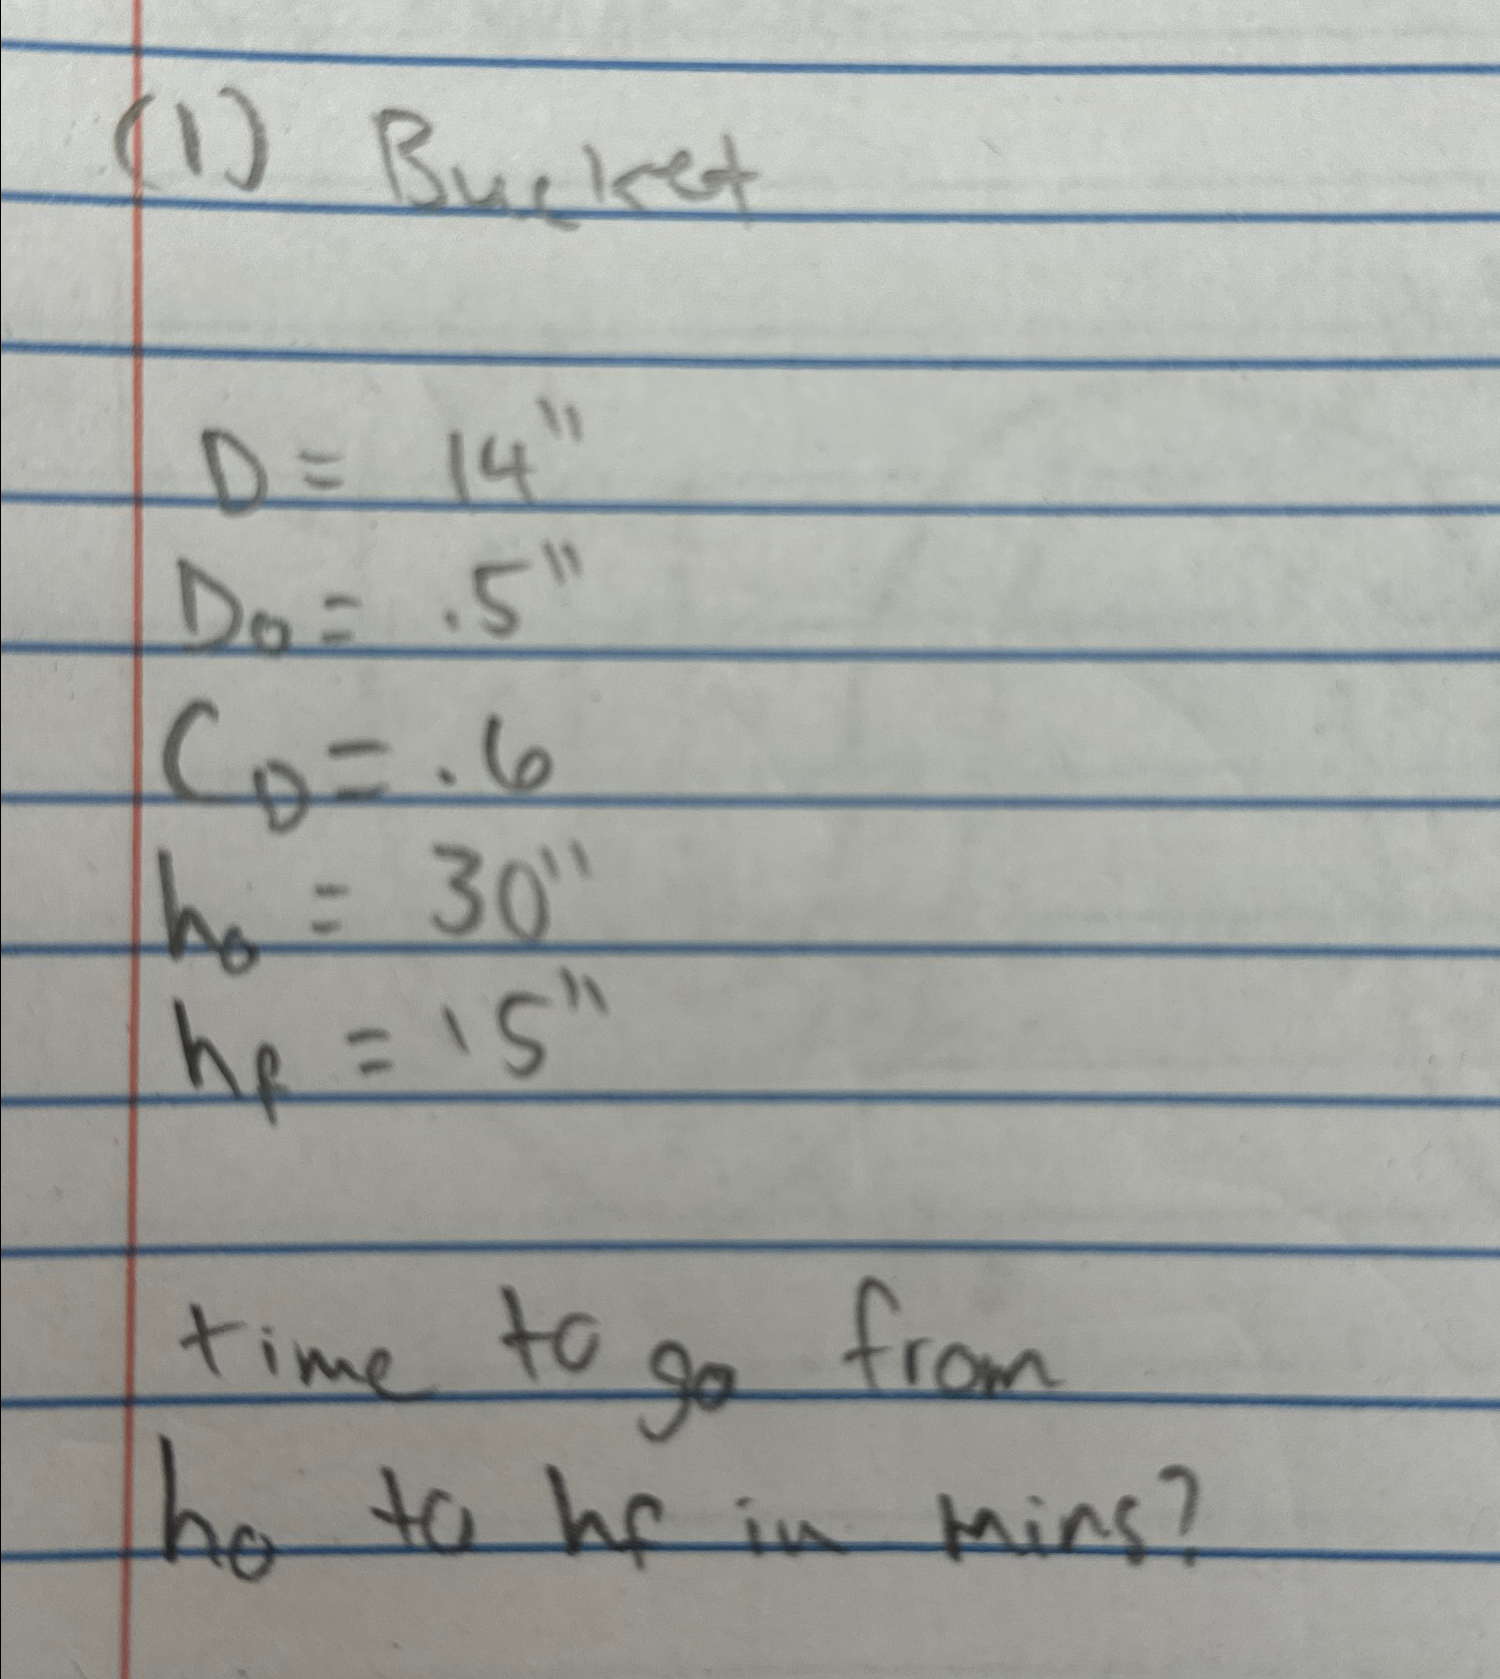 (1) Bucket
D = 14"
D₀ = .5"
C_D = .6
h₀ = 30"
h_f = 15"
time to go from
h₀ to hf in mins?